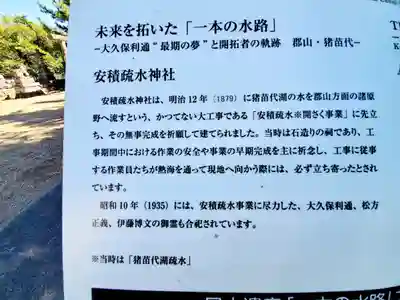 未来を拓いた「一本の水路」
−大久保利通“最期の夢”と開拓者の軌跡 郡山・猪苗代−
安積疏水神社
安積疏水神社は、明治12年（1879）に猪苗代湖の水を郡山方面の諸原
野へ流すという、かつてない大工事である「安積疏水※開さく事業」に先立
ち、その無事完成を祈願して建てられました。当時は石造りの祠であり、工
事期間中における作業の安全や事業の早期完成を主に祈念し、工事に従事
する作業員たちが熱海を通って現地へ向かう際には、必ず立ち寄ったとされ
ています。
昭和10年（1935）には、安積疏水事業に尽力した、大久保利通、松方
正義、伊藤博文の御霊も合祀されています。
※当時は「猪苗代湖疏水」